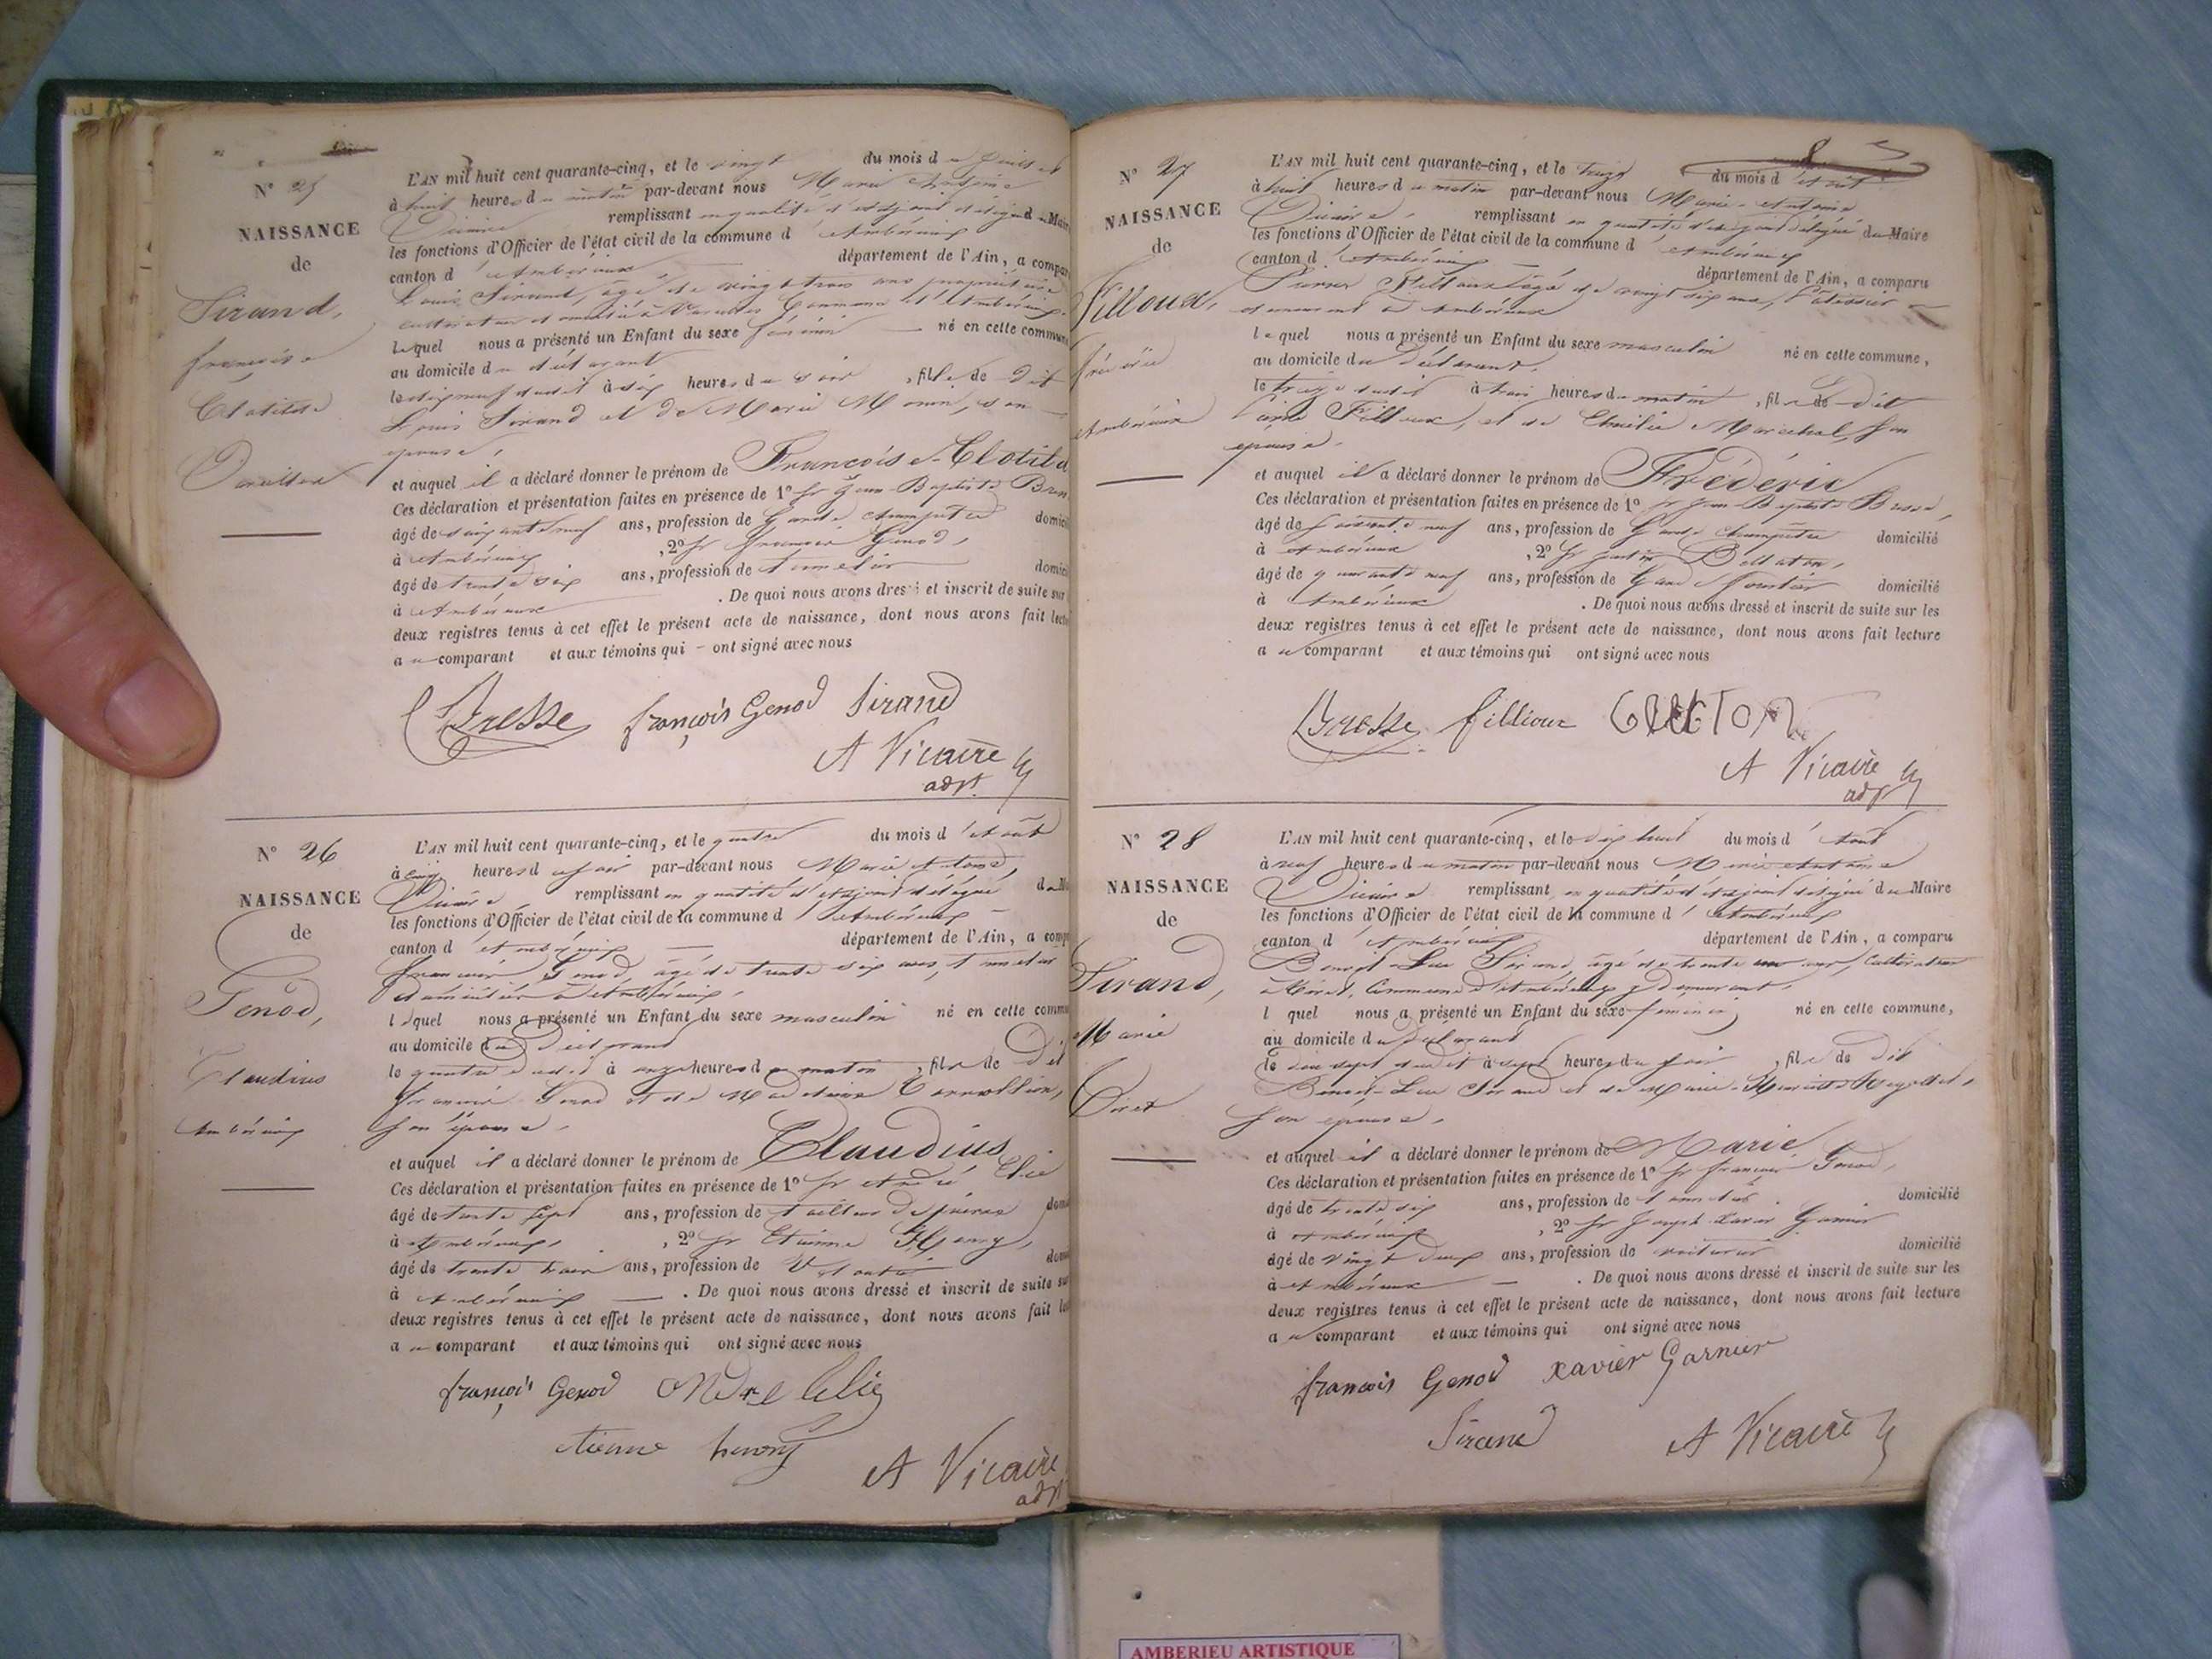 N° 25
NAISSANCE
de
Sirand,
françoise
Clotilde
L'AN mil huit cent quarante-cinq, et le vingt du mois de Juillet
à huit heures du matin par-devant nous Marie Antoine
Vicaire remplissant en qualité d'adjoint délégué du Maire
les fonctions d'Officier de l'état civil de la commune d'Ambérieux
canton d'Ambérieux département de l'Ain, a compar
Louis Sirand, âgé de vingt trois ans propriétaire
cultivateur domicilié à Commune d'Ambérieux
lequel nous a présenté un Enfant du sexe féminin né en cette commune
au domicile du déclarant
le dix neuf dudit à six heures du soir, fille de dit
Louis Sirand et de Marie Monin, son
épouse,
et auquel il a déclaré donner le prénom de Françoise-Clotild
Ces déclaration et présentation faites en présence de 1° Sr Jean-Baptiste
âgé de soixante neuf ans, profession de Garde champêtre domicil
à Ambérieux, 2° Sr françois Genod,
âgé de trente six ans, profession de domici
à Ambérieux. De quoi nous avons dressé et inscrit de suite sur
deux registres tenus à cet effet le présent acte de naissance, dont nous avons fait lectu
au comparant et aux témoins qui ont signé avec nous
Bresse françois Genod Sirand
A Vicaire
adjt.
N° 26
NAISSANCE
de
Genod,
Claudius
Ambérieux
L'AN mil huit cent quarante-cinq, et le quatre du mois d'Août
à cinq heures du soir par-devant nous Marie Antoine
Vicaire remplissant en qualité d'adjoint délégué du M
les fonctions d'Officier de l'état civil de la commune d'Ambérieux
canton d'Ambérieux département de l'Ain, a comp
françois Genod, âgé de trente six ans,
domicilié à Ambérieux,
lequel nous a présenté un Enfant du sexe masculin né en cette comm
au domicile du Déclarant
le quatre dudit à onze heures du matin, fils de Dit
françois Genod et de Madelaine
son épouse,
et auquel il a déclaré donner le prénom de Claudius
Ces déclaration et présentation faites en présence de 1° Sr André Elie
âgé de trente sept ans, profession de tailleur de pierres domi
à Ambérieux, 2° Sr Etienne Henry,
âgé de trente trois ans, profession de domi
à Ambérieux. De quoi nous avons dressé et inscrit de suite su
deux registres tenus à cet effet le présent acte de naissance, dont nous avons fait le
au comparant et aux témoins qui ont signé avec nous
françois Genod andre Elie
etienne henry
A Vicaire
adjt
N° 27
NAISSANCE
de
Filloux,
fréderic
Ambérieux
8
L'AN mil huit cent quarante-cinq, et le treize du mois d'Août
à huit heures du matin par-devant nous Marie-Antoine
Vicaire, remplissant en qualité d'adjoint délégué du Maire
les fonctions d'Officier de l'état civil de la commune d'Ambérieux
canton d'Ambérieux département de l'Ain, a comparu
Filloux âgé de vingt six ans, Pâtissier
demeurant à Ambérieux
lequel nous a présenté un Enfant du sexe masculin né en cette commune,
au domicile du Déclarant.
le treize dudit à trois heures du matin, fils de Dit
Filloux, et de Emélie Maréchal, son
épouse.
et auquel il a déclaré donner le prénom de Frédéric
Ces déclaration et présentation faites en présence de 1° Sr Jean-Baptiste Bresse,
âgé de soixante neuf ans, profession de Garde champêtre domicilié
à Ambérieux, 2° Sr
âgé de quarante neuf ans, profession de Garde forestier domicilié
à Ambérieux. De quoi nous avons dressé et inscrit de suite sur les
deux registres tenus à cet effet le présent acte de naissance, dont nous avons fait lecture
au comparant et aux témoins qui ont signé avec nous
Bresse fillioux
A Vicaire
adjt
N° 28
NAISSANCE
de
Sirand,
Marie
L'AN mil huit cent quarante-cinq, et le dix huit du mois d'Août
à neuf heures du matin par-devant nous Marie Antoine
Vicaire remplissant en qualité d'adjoint délégué du Maire
les fonctions d'Officier de l'état civil de la commune d'Ambérieux
canton d'Ambérieux département de l'Ain, a comparu
Benoit-Luc Sirand âgé de trente un ans, Cultivateur
Commune d'Ambérieux y demeurant,
lequel nous a présenté un Enfant du sexe féminin né en cette commune,
au domicile du déclarant
le dix sept dudit à sept heures du soir, fille de Dit
Benoit-Luc Sirand et de Marie-
son épouse,
et auquel il a déclaré donner le prénom de Marie
Ces déclaration et présentation faites en présence de 1° Sr françois Genod,
âgé de trente six ans, profession de domicilié
à Ambérieux, 2° Sr Joseph Xavier Garnier
âgé de vingt deux ans, profession de voiturier domicilié
à Ambérieux. De quoi nous avons dressé et inscrit de suite sur les
deux registres tenus à cet effet le présent acte de naissance, dont nous avons fait lecture
au comparant et aux témoins qui ont signé avec nous
francois Genod xavier Garnier
Sirand A Vicaire
AMBERIEU ARTISTIQUE